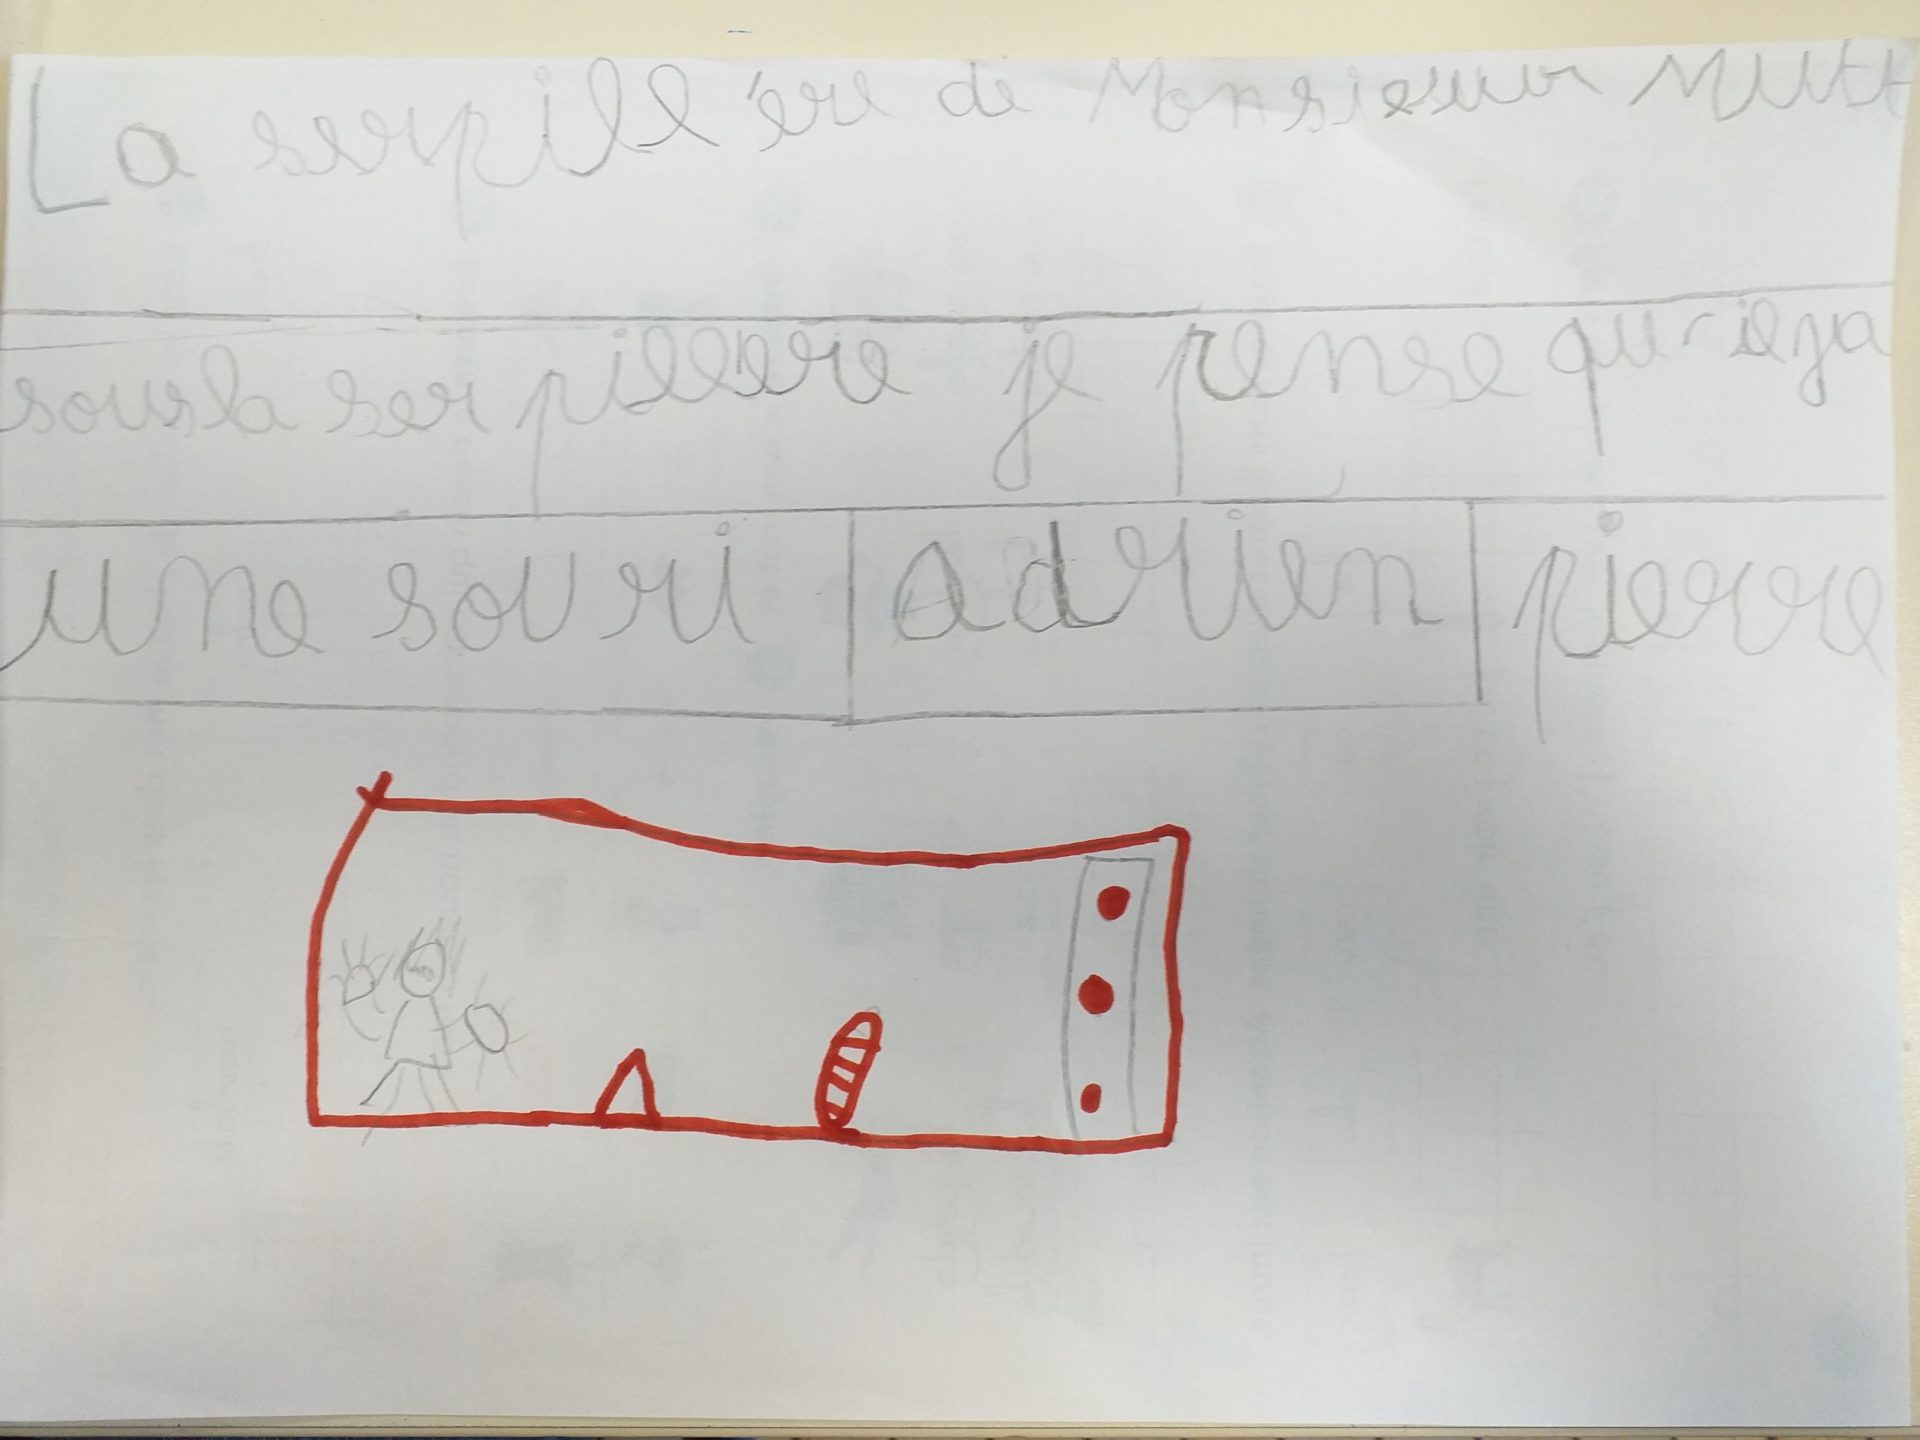 La serpill ère de Monsieur Mutt
sous la ser pillere je pense qu-ilya
une souri adrien pierre